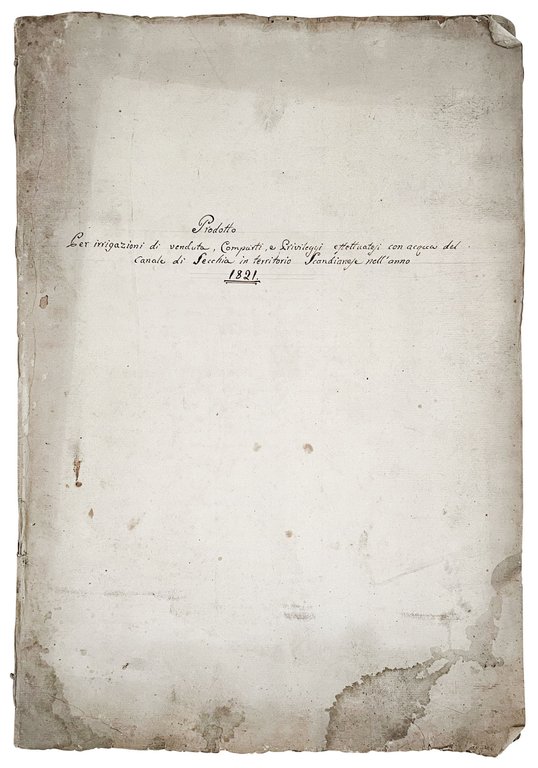 Prodotto
Per irrigazioni di vendita, Comparti, e Privileggi effettuatesi con acqua del
Canale di Secchia in territorio Scandianese nell'anno
1821.